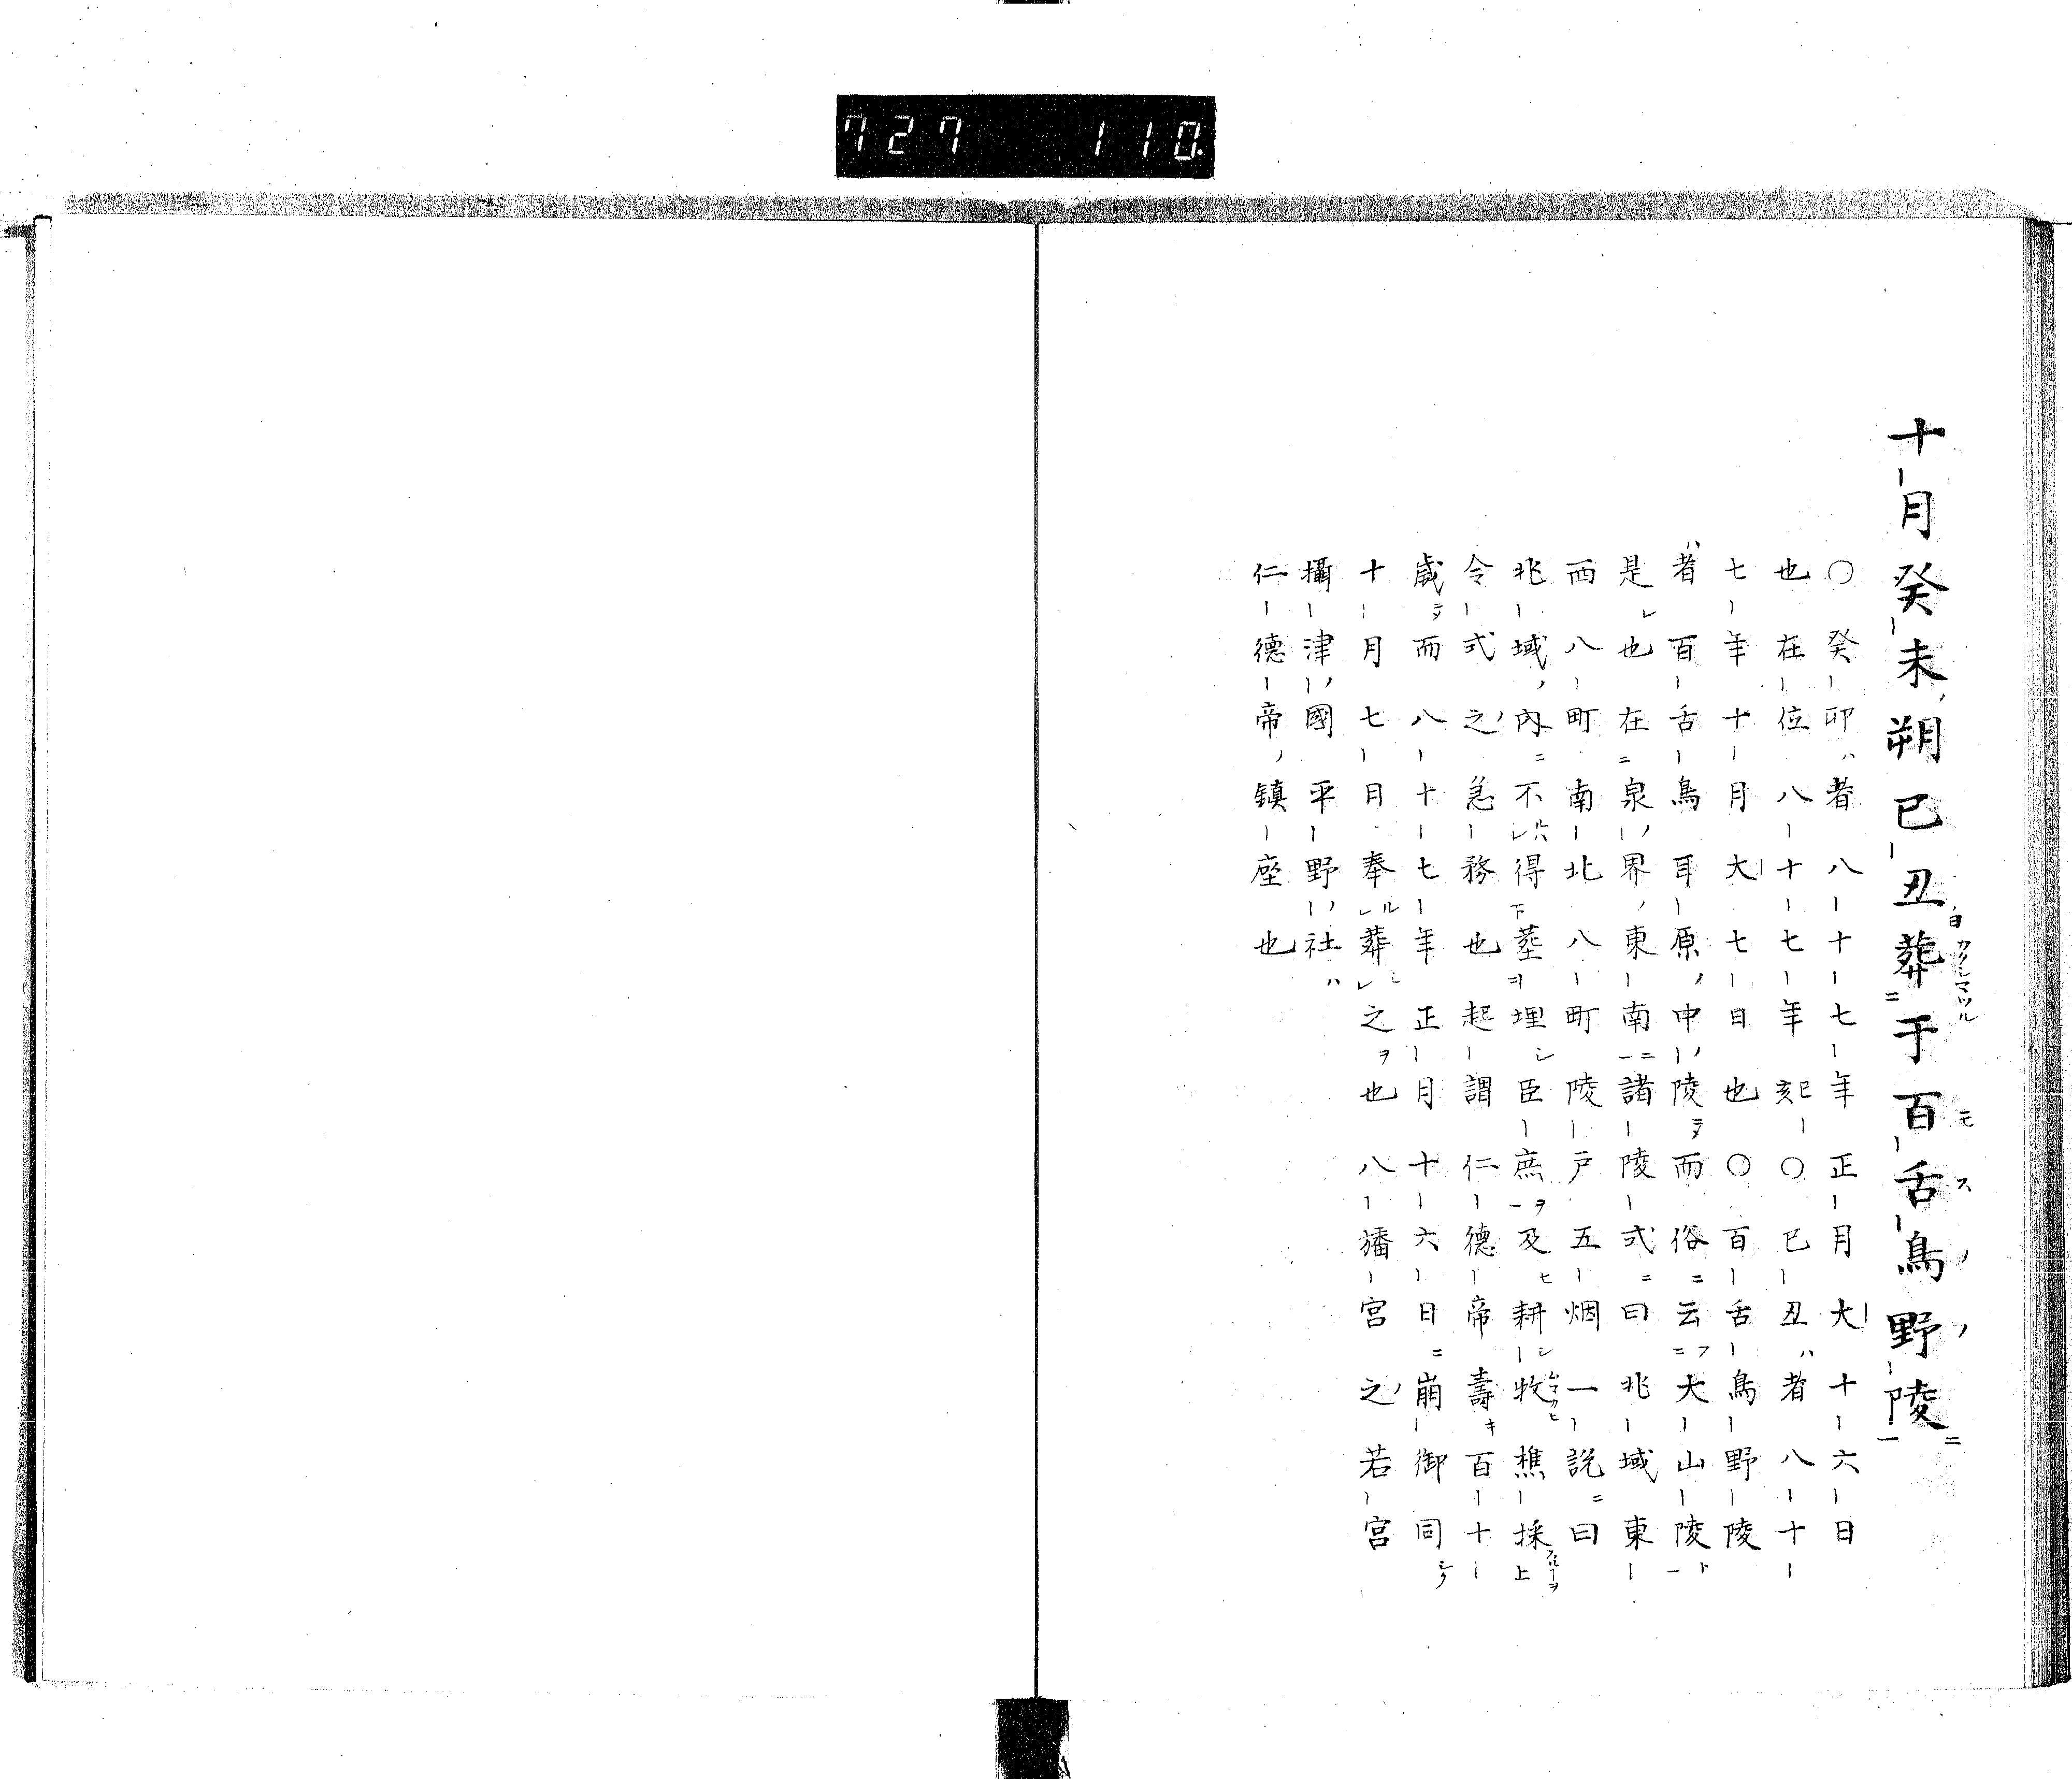 727 110
十月癸未朔己丑葬于百舌鳥野陵
〇癸卯者八十七年正月大十六日
也在位八十七年亥〇己丑者八十
七年十月大七日也〇百舌鳥野陵
者百舌鳥耳原中陵而俗云大山陵
是也在泉界東南諸陵式曰兆域東
西八町南北八町陵戸五烟一説曰
兆域内不得葬埋臣庶及耕牧樵採
令式之急務也起謂仁德帝壽百十
歳而八十七年正月十六日崩御同
十月七日奉葬之也八旛宮之若宮
攝津國平野社
仁德帝鎮座也